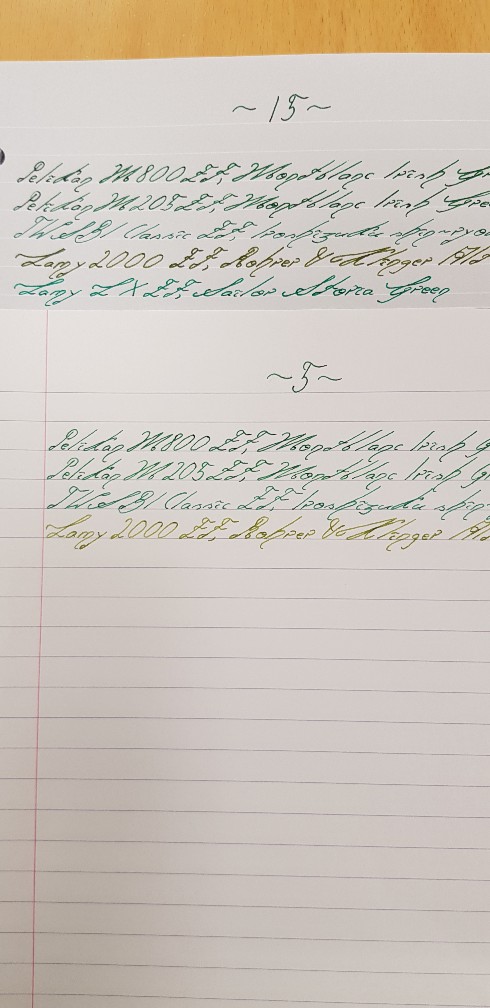 ~15~
Pelikan M800 EF, Montblanc Irish Gr
Pelikan M205 EF, Montblanc Irish Gree
TWSBI Classic EF, Iroshizuku shin-ryo
Lamy 2000 EF, Rohrer & Klinger Alt
Lamy LX EF, Sailor Storia Green
~5~
Pelikan M800 EF, Montblanc Irish G
Pelikan M205 EF, Montblanc Irish Gr
TWSBI Classic EF, Iroshizuku shin
Lamy 2000 EF, Rohrer & Klinger Alt